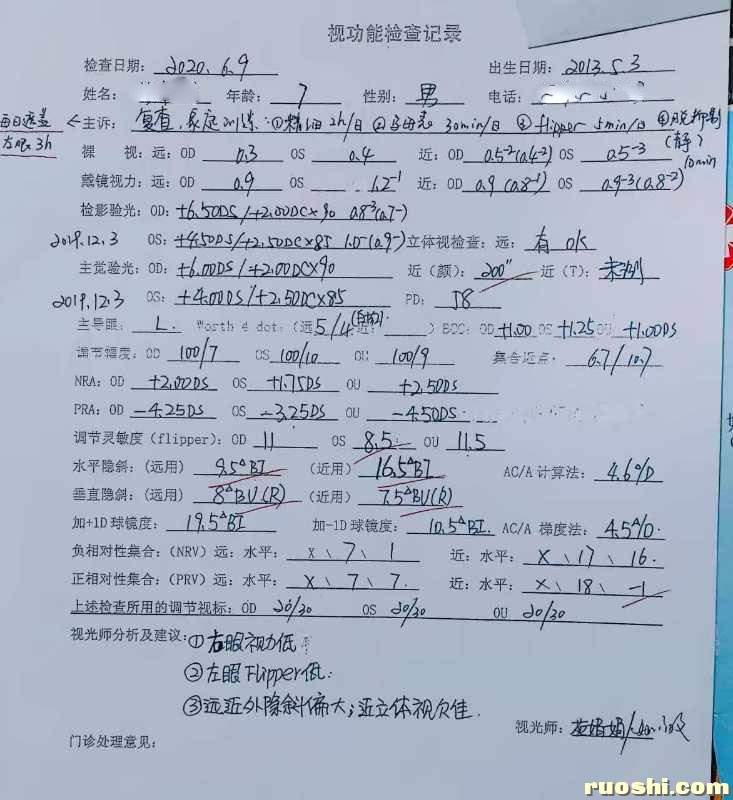 视功能检查记录
检查日期: 2020.6.9 出生日期: 2013.5.3
姓名: 年龄: 7 性别: 男 电话:
每日遮盖左眼3h ← 主诉: 复查,家庭训练: ① 精细 2h/日 ② 30min/日 ③ flipper 5min/日 ④ 脱抑制(静) 10min
裸 视: 远: OD 0.3 OS 0.4 近: OD 0.5-2(0.4-2) OS 0.5-3
戴镜视力: 远: OD 0.9 OS 1.2-1 近: OD 0.9(0.8-1) OS 0.9-3(0.8-2)
检影验光: OD: +6.50DS/+2.00DC×90 0.8-3(0.7-)
2019.12.3 OS: +4.50DS/+2.50DC×85 1.0-(0.9-) 立体视检查: 远: 有 OK
主觉验光: OD: +6.00DS/+2.00DC×90 近(颜): 200" 近(T): 未测
2019.12.3 OS: +4.00DS/+2.50DC×85 PD: 58
主导眼: L. Worth 4 dot: (远 5/4 近: ) BCC: OD +1.00 OS +1.25 OU +1.00DS
调节幅度: OD 100/7 OS 100/10 OU 100/9 集合近点: 6.7/10.7
NRA: OD +2.00DS OS +1.75DS OU +2.50DS
PRA: OD -4.25DS OS -3.25DS OU -4.50DS
调节灵敏度(flipper): OD 11 OS 8.5 OU 11.5
水平隐斜: (远用) 9.5△BI (近用) 16.5△BI AC/A 计算法: 4.6△/D
垂直隐斜: (远用) 8△BU(R) (近用) 7.5△BU(R)
加+1D球镜度: 19.5△BI 加-1D球镜度: 10.5△BI. AC/A 梯度法: 4.5△/D.
负相对性集合: (NRV) 远: 水平: X、7、1 近: 水平: X、17、16.
正相对性集合: (PRV) 远: 水平: X、7、7. 近: 水平: X、18、-1
上述检查所用的调节视标: OD 20/30 OS 20/30 OU 20/30
视光师分析及建议: ①右眼视力低
②左眼Flipper低.
③远近外隐斜偏大;近立体视欠佳.
视光师:
门诊处理意见:
ruoshi.com